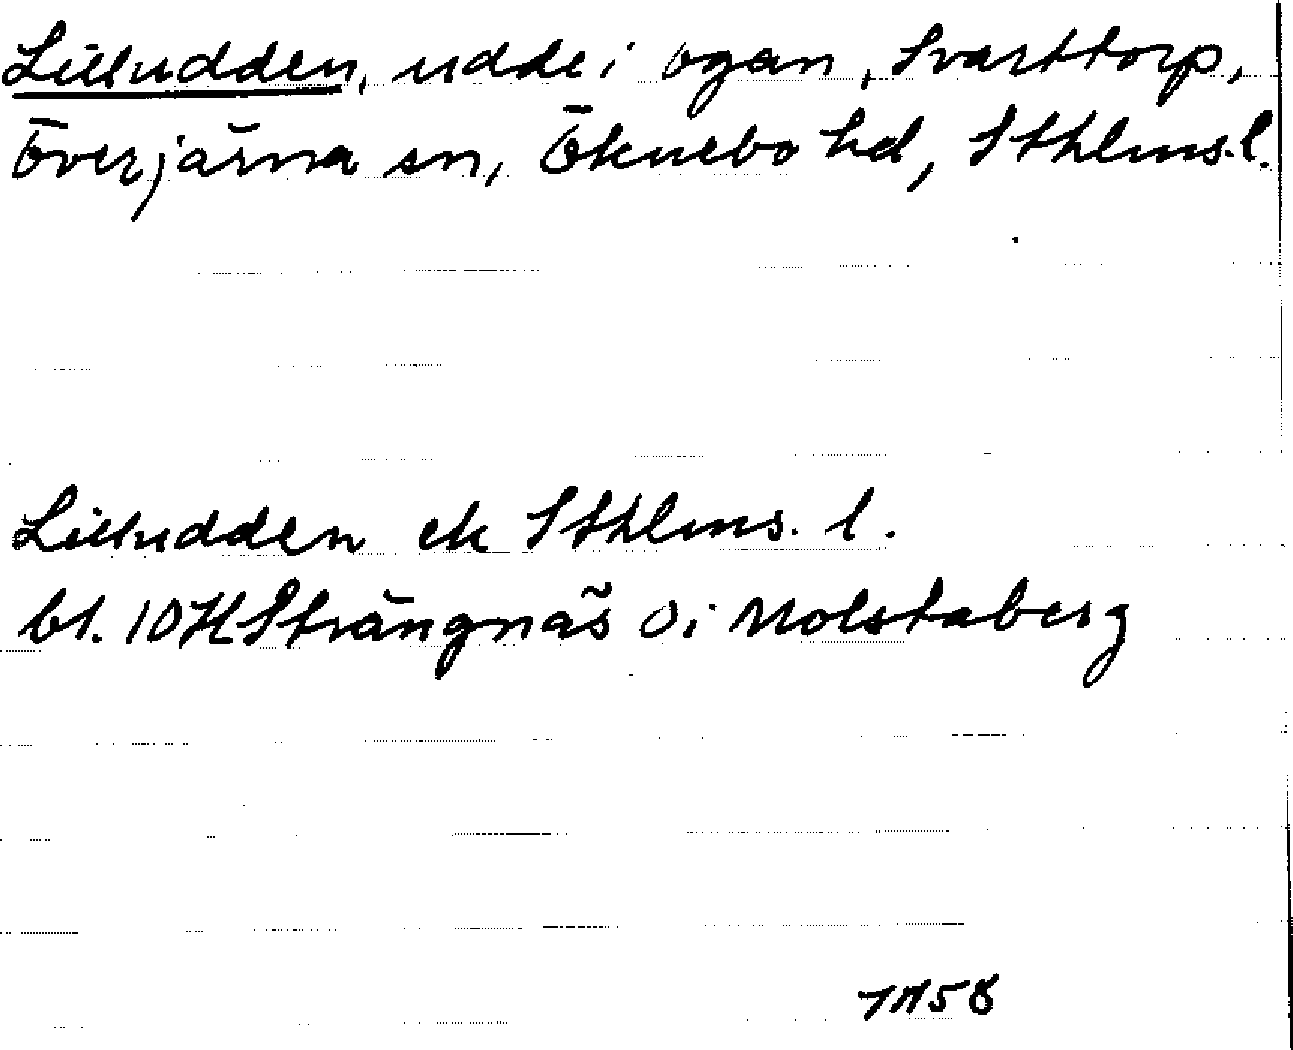 Lilludden, udde i Ogan, Svarttorp,
Överjärna sn, Öknebo hd, Sthlms. l.
Lilludden ek Sthlms. l.
bl. 10H Strängnäs Oi Molstaberg